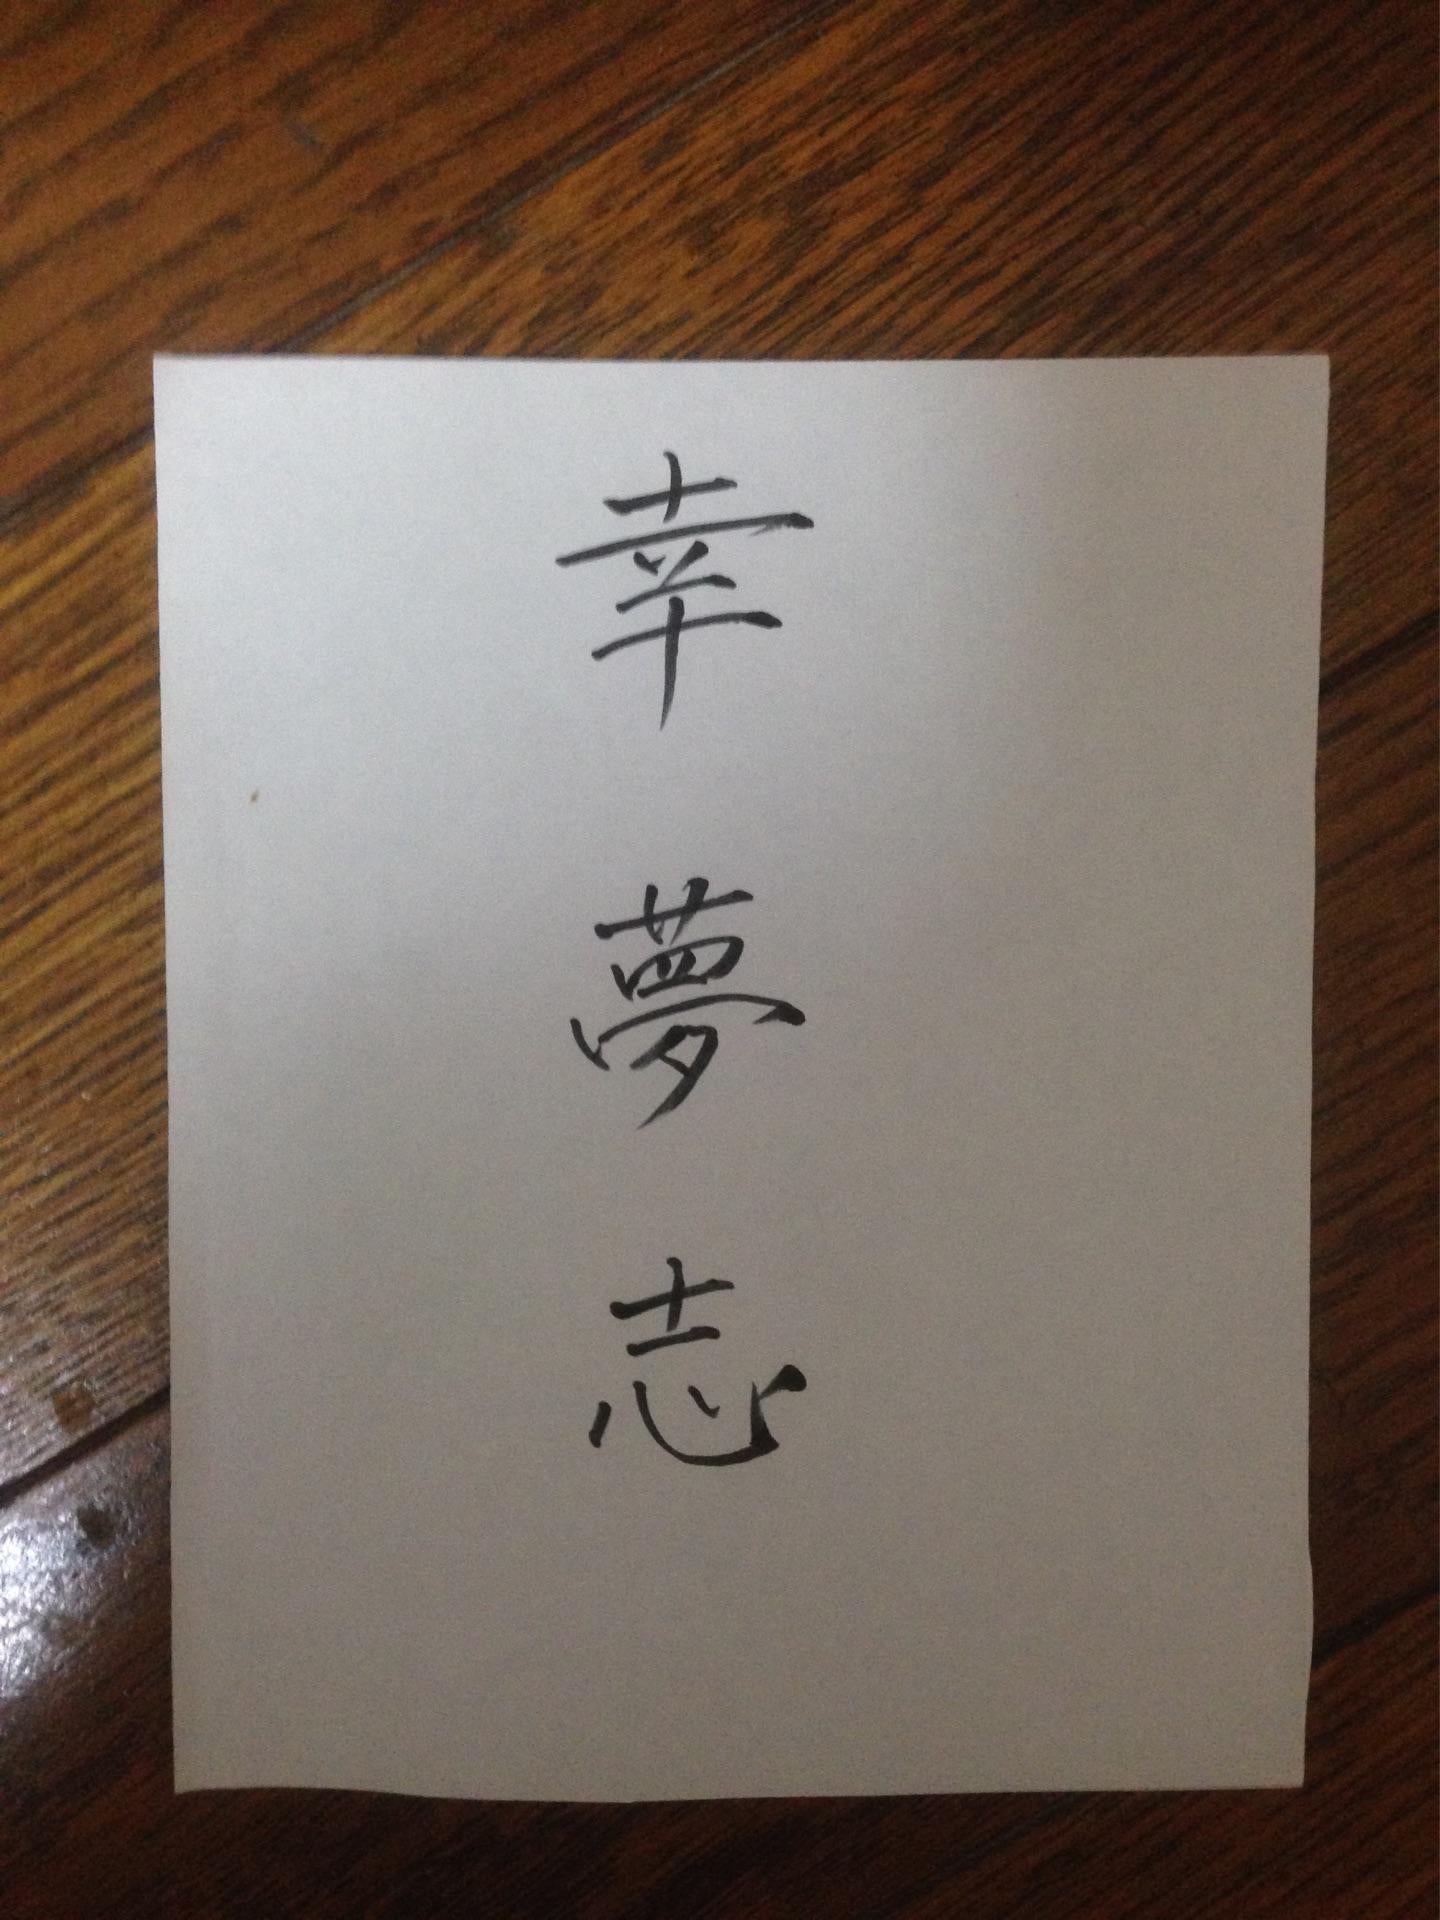 幸夢志